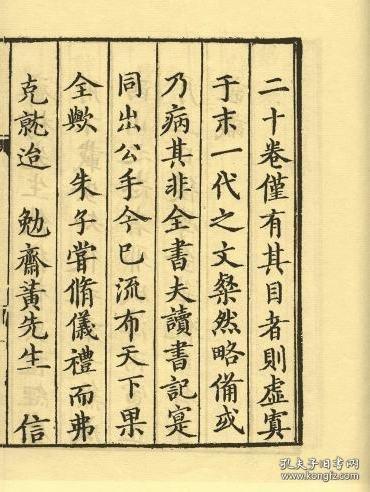 二十卷僅有其目者則虛寘
于末一代之文粲然略備或
乃病其非全書夫讀書記寔
同出公手今已流布天下果
全歟 朱子嘗脩儀禮而弗
克就迨 勉齋黃先生 信
孔夫子旧书网
www.kongfz.com